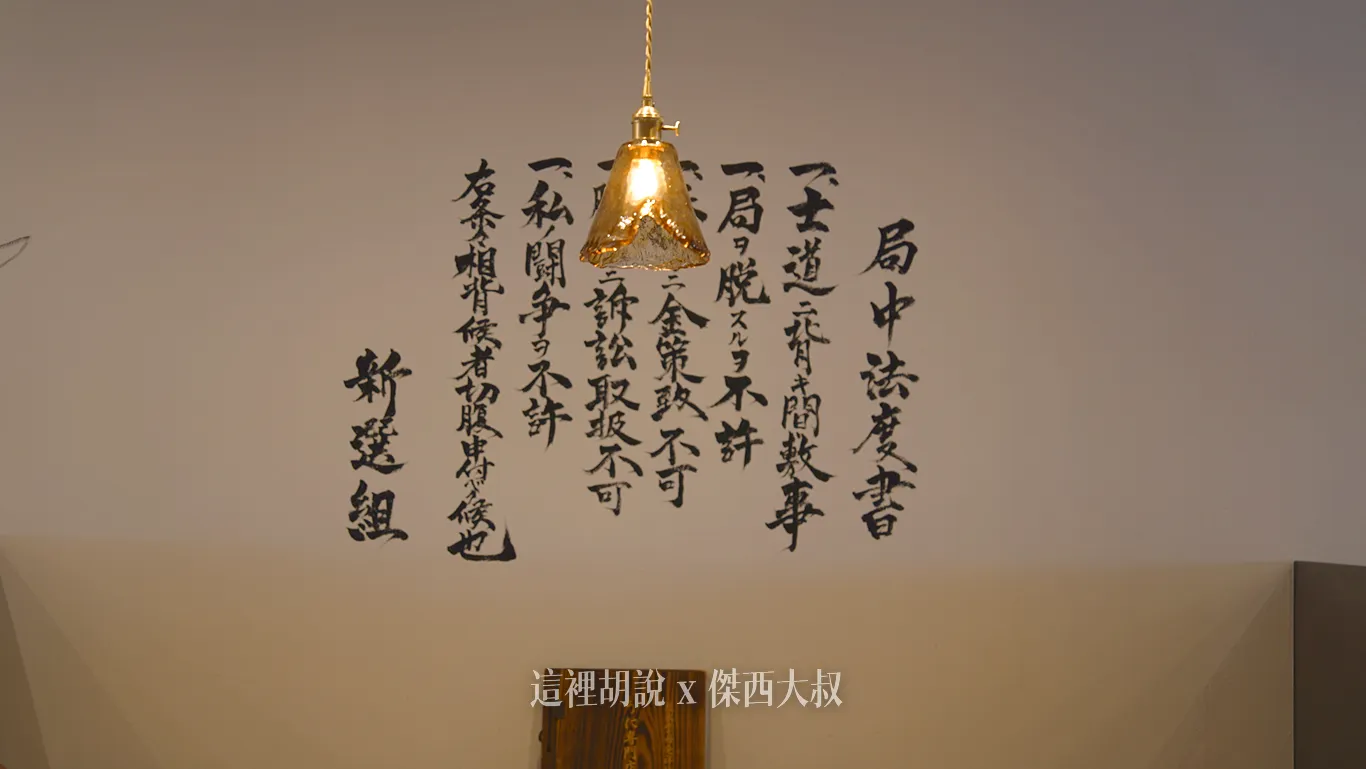 局中法度書
一、士道ニ背キ間敷事
一、局ヲ脱スルヲ不許
ニ金策致不可
ニ訴訟取扱不可
一、私ノ闘争ヲ不許
右条々相背候者切腹申付ベク候也
新選組
這裡胡說 x 傑西大叔